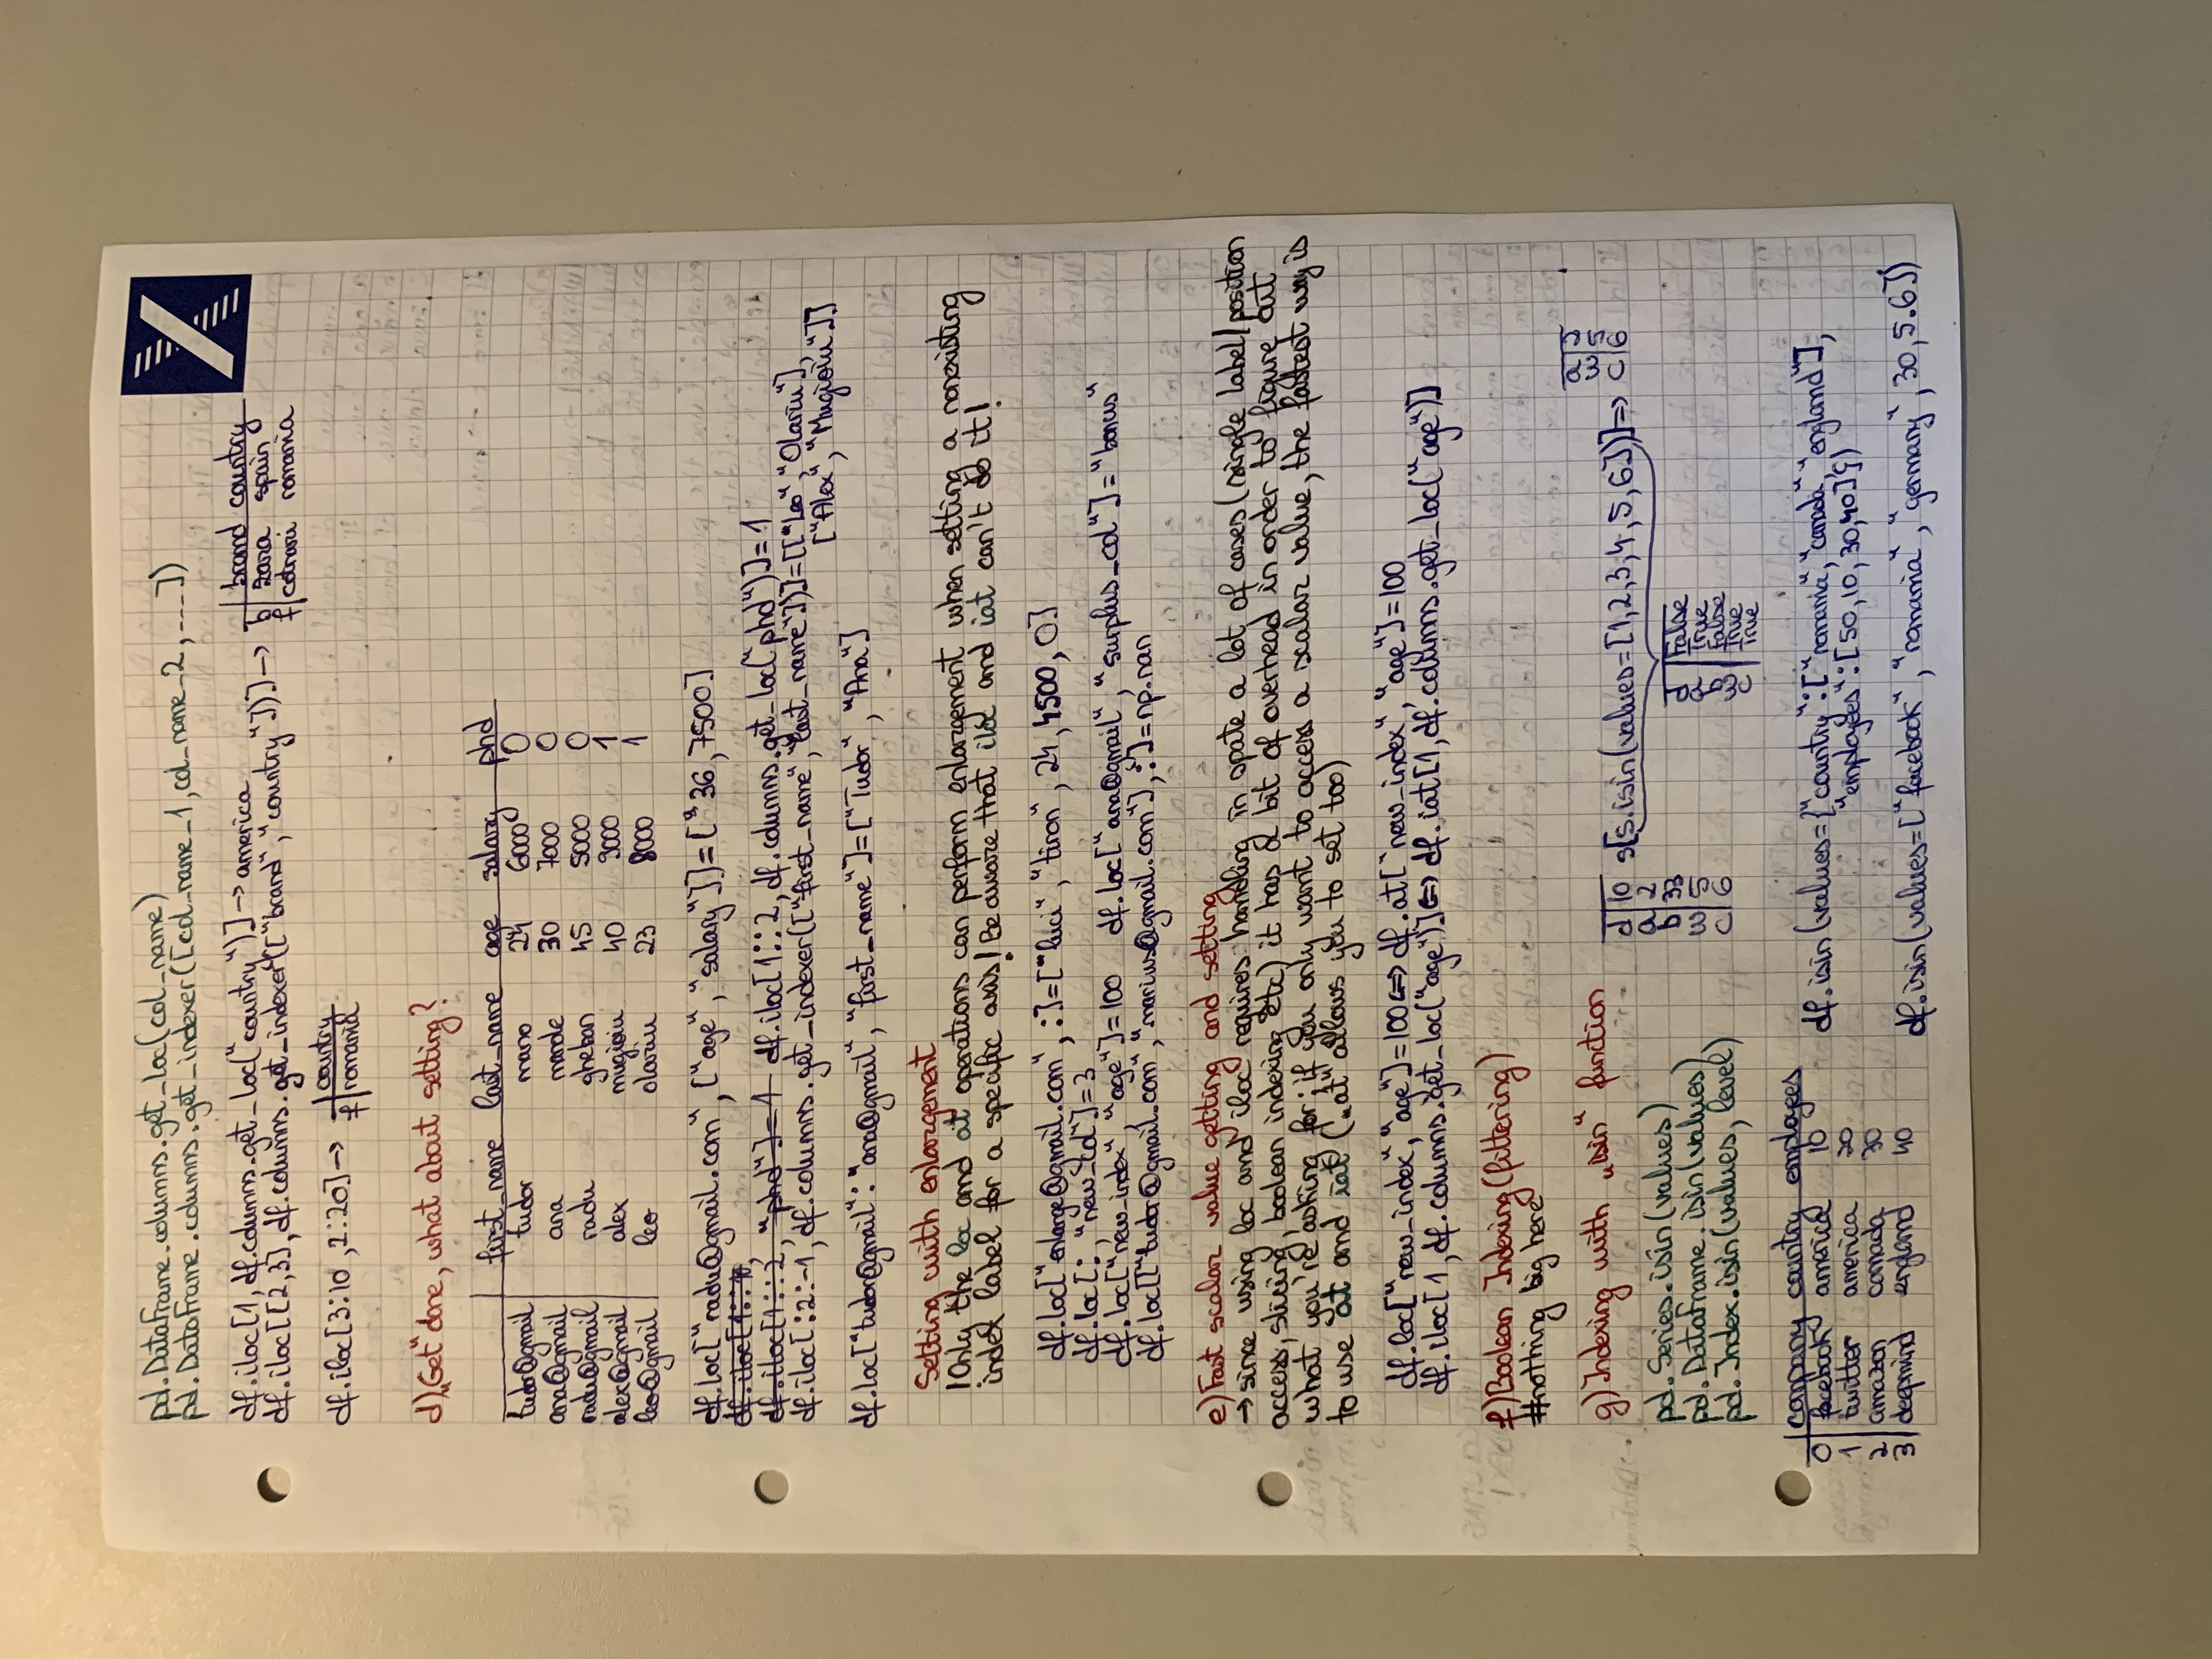 pd.DataFrame.columns.get_loc(col_name)
pd.DataFrame.columns.get_indexer([col_name_1,col_name_2,---])
df.iloc[1,df.columns.get_loc("country")]→america
df.iloc[[2,3],df.columns.get_indexer(["brand","country"])]→
brand country
b zara spain
f cotnari romania
df.iloc[3:10,2:20]→
country
f romania
d)„Get" done, what about setting?
first_name last_name age salary phd
tudor@gmail tudor mano 24 6000 0
ana@gmail ana mande 30 7000 0
radu@gmail radu gheban 45 5000 0
alex@gmail alex mugioiu 40 9000 1
leo@gmail leo olariu 23 8000 1
df.loc["radu@gmail.com",["age","salary"]]=[36,7500]
df.iloc[1::
df.iloc[1::2,"phd"]=1 df.iloc[1::2,df.columns.get_loc("phd")]=1
df.iloc[:2:-1,df.columns.get_indexer(["first_name","last_name"])]=[["Leo","Olariu"],
["Alex","Mugioiu"]]
df.loc["tudor@gmail":"ana@gmail","first_name"]=["Tudor","Ana"]
Setting with enlargement
!Only the loc and at operations can perform enlargement when setting a nonexisting
index label for a specific axis! Be aware that iloc and iat can't do it!
df.loc["enlarge@gmail.com",:]=["luci","tiron",24,4500,0]
df.loc[:,"new_col"]=3
df.loc["new_index","age"]=100 df.loc["ana@gmail","surplus_col"]="bonus"
df.loc[["tudor@gmail.com","marius@gmail.com"],:]=np.nan
e)Fast scalar value getting and setting
→since using loc and iloc requires handling in spate a lot of cases(single label/position
access,slicing,boolean indexing etc) it has a bit of overhead in order to figure out
what you're asking for; if you only want to access a scalar value, the fastest way is
to use at and iat („at" allows you to set too)
df.loc["new_index","age"]=100⇔df.at["new_index","age"]=100
df.iloc[1,df.columns.get_loc("age")]⇔df.iat[1,df.columns.get_loc("age")]
f)Boolean Indexing(filtering)
#nothing big here
g)Indexing with „isin" function
pd.Series.isin(values)
pd.DataFrame.isin(values)
pd.Index.isin(values, level)
d 10
a 2
b 33
w 5
c 6
s[s.isin(values=[1,2,3,4,5,6])]⇒
a 2
w 5
c 6
d False
a True
b False
w True
c True
company country employees
0 facebook america 10
1 twitter america 20
2 amazon canada 30
3 deepmind england 40
df.isin(values={"country":["romania","canada","england"],
"employees":[50,10,30,40]})
df.isin(values=["facebook","romania","germany",30,5.6])